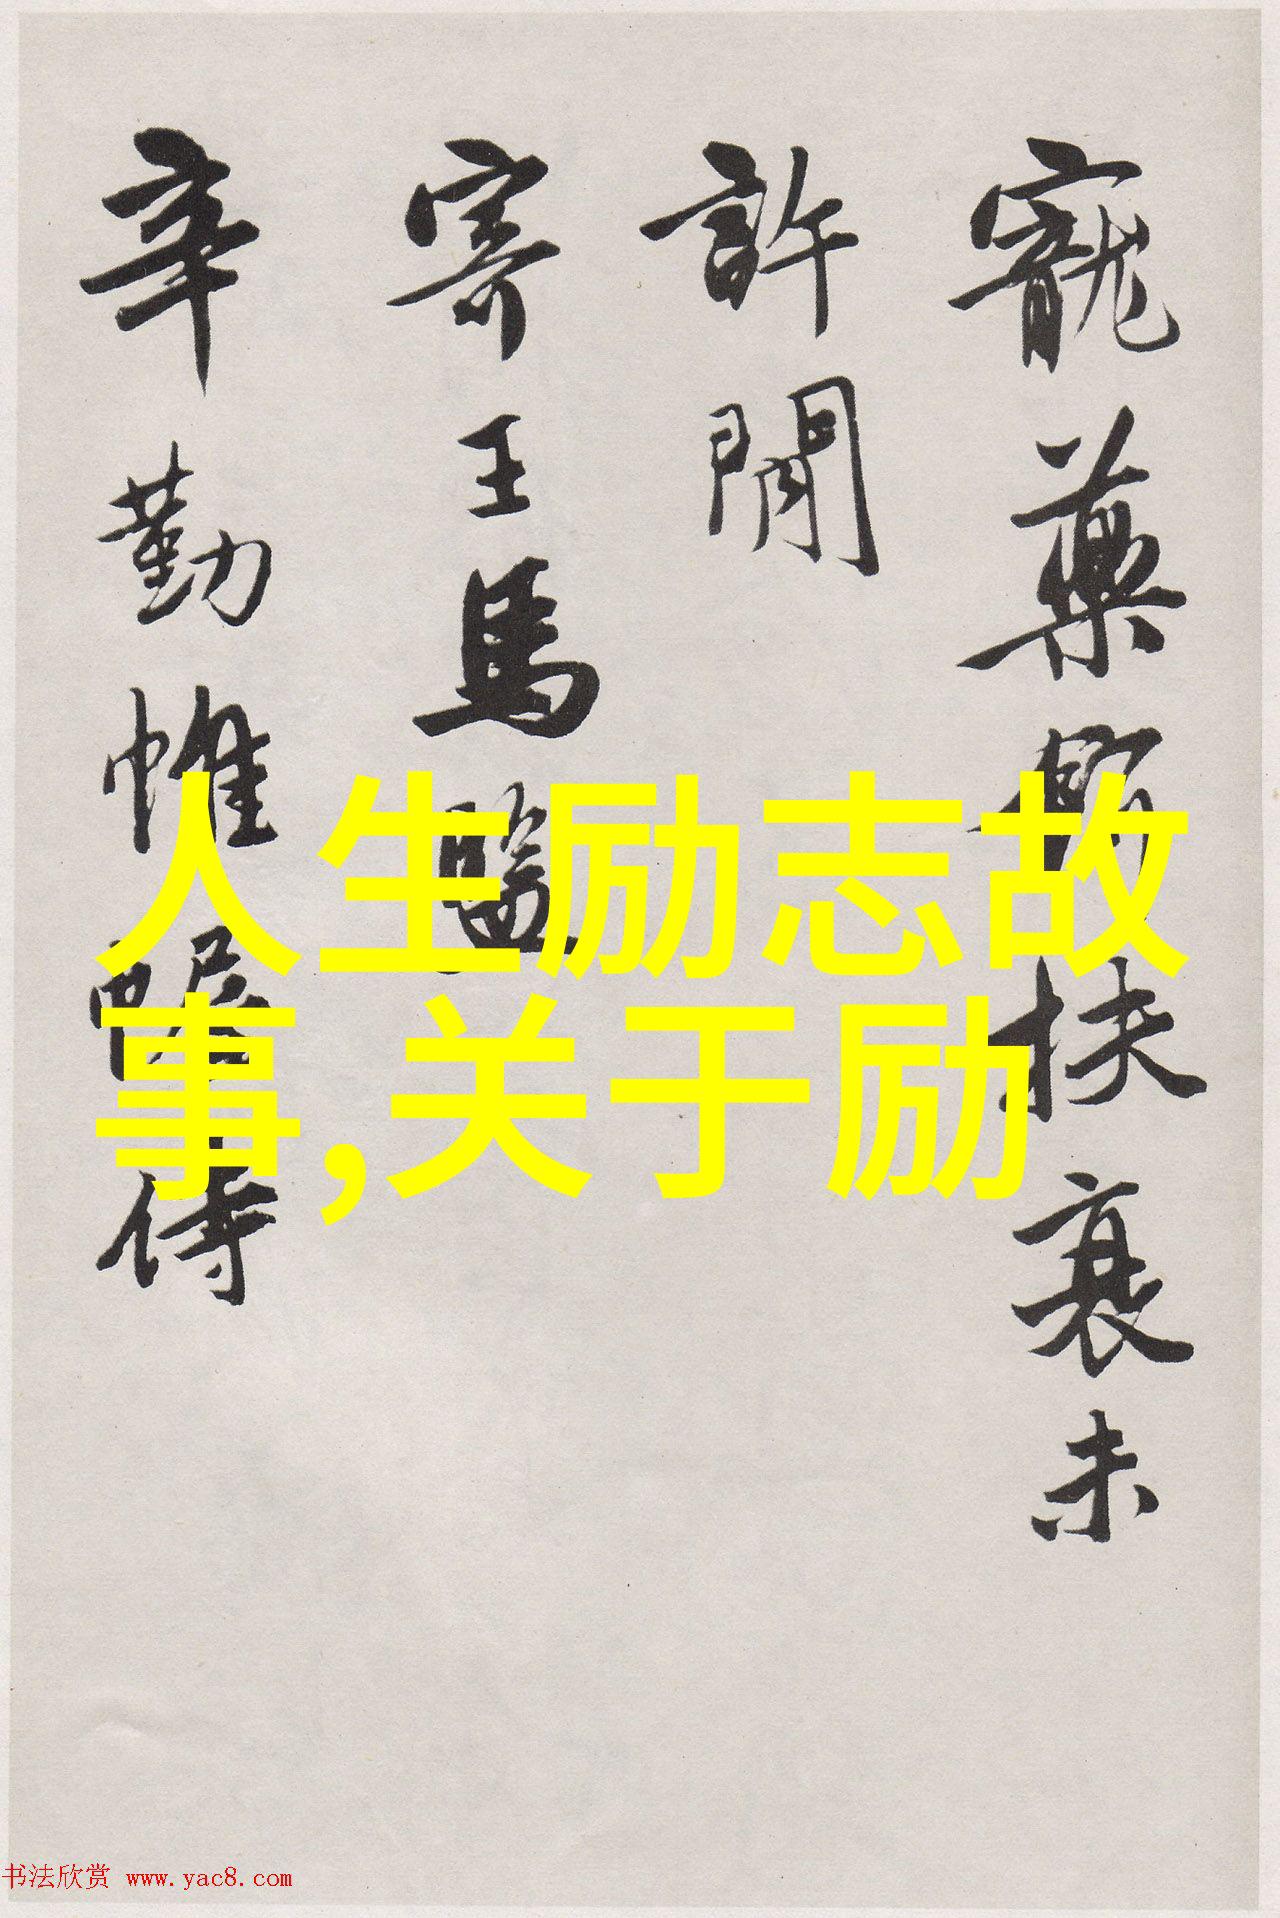 寵藥餌扶衰未
許閒
寄王馬鹽
辛勤帷幄侍
人生励志故
事,关于励
书法欣赏 www.yac8.com